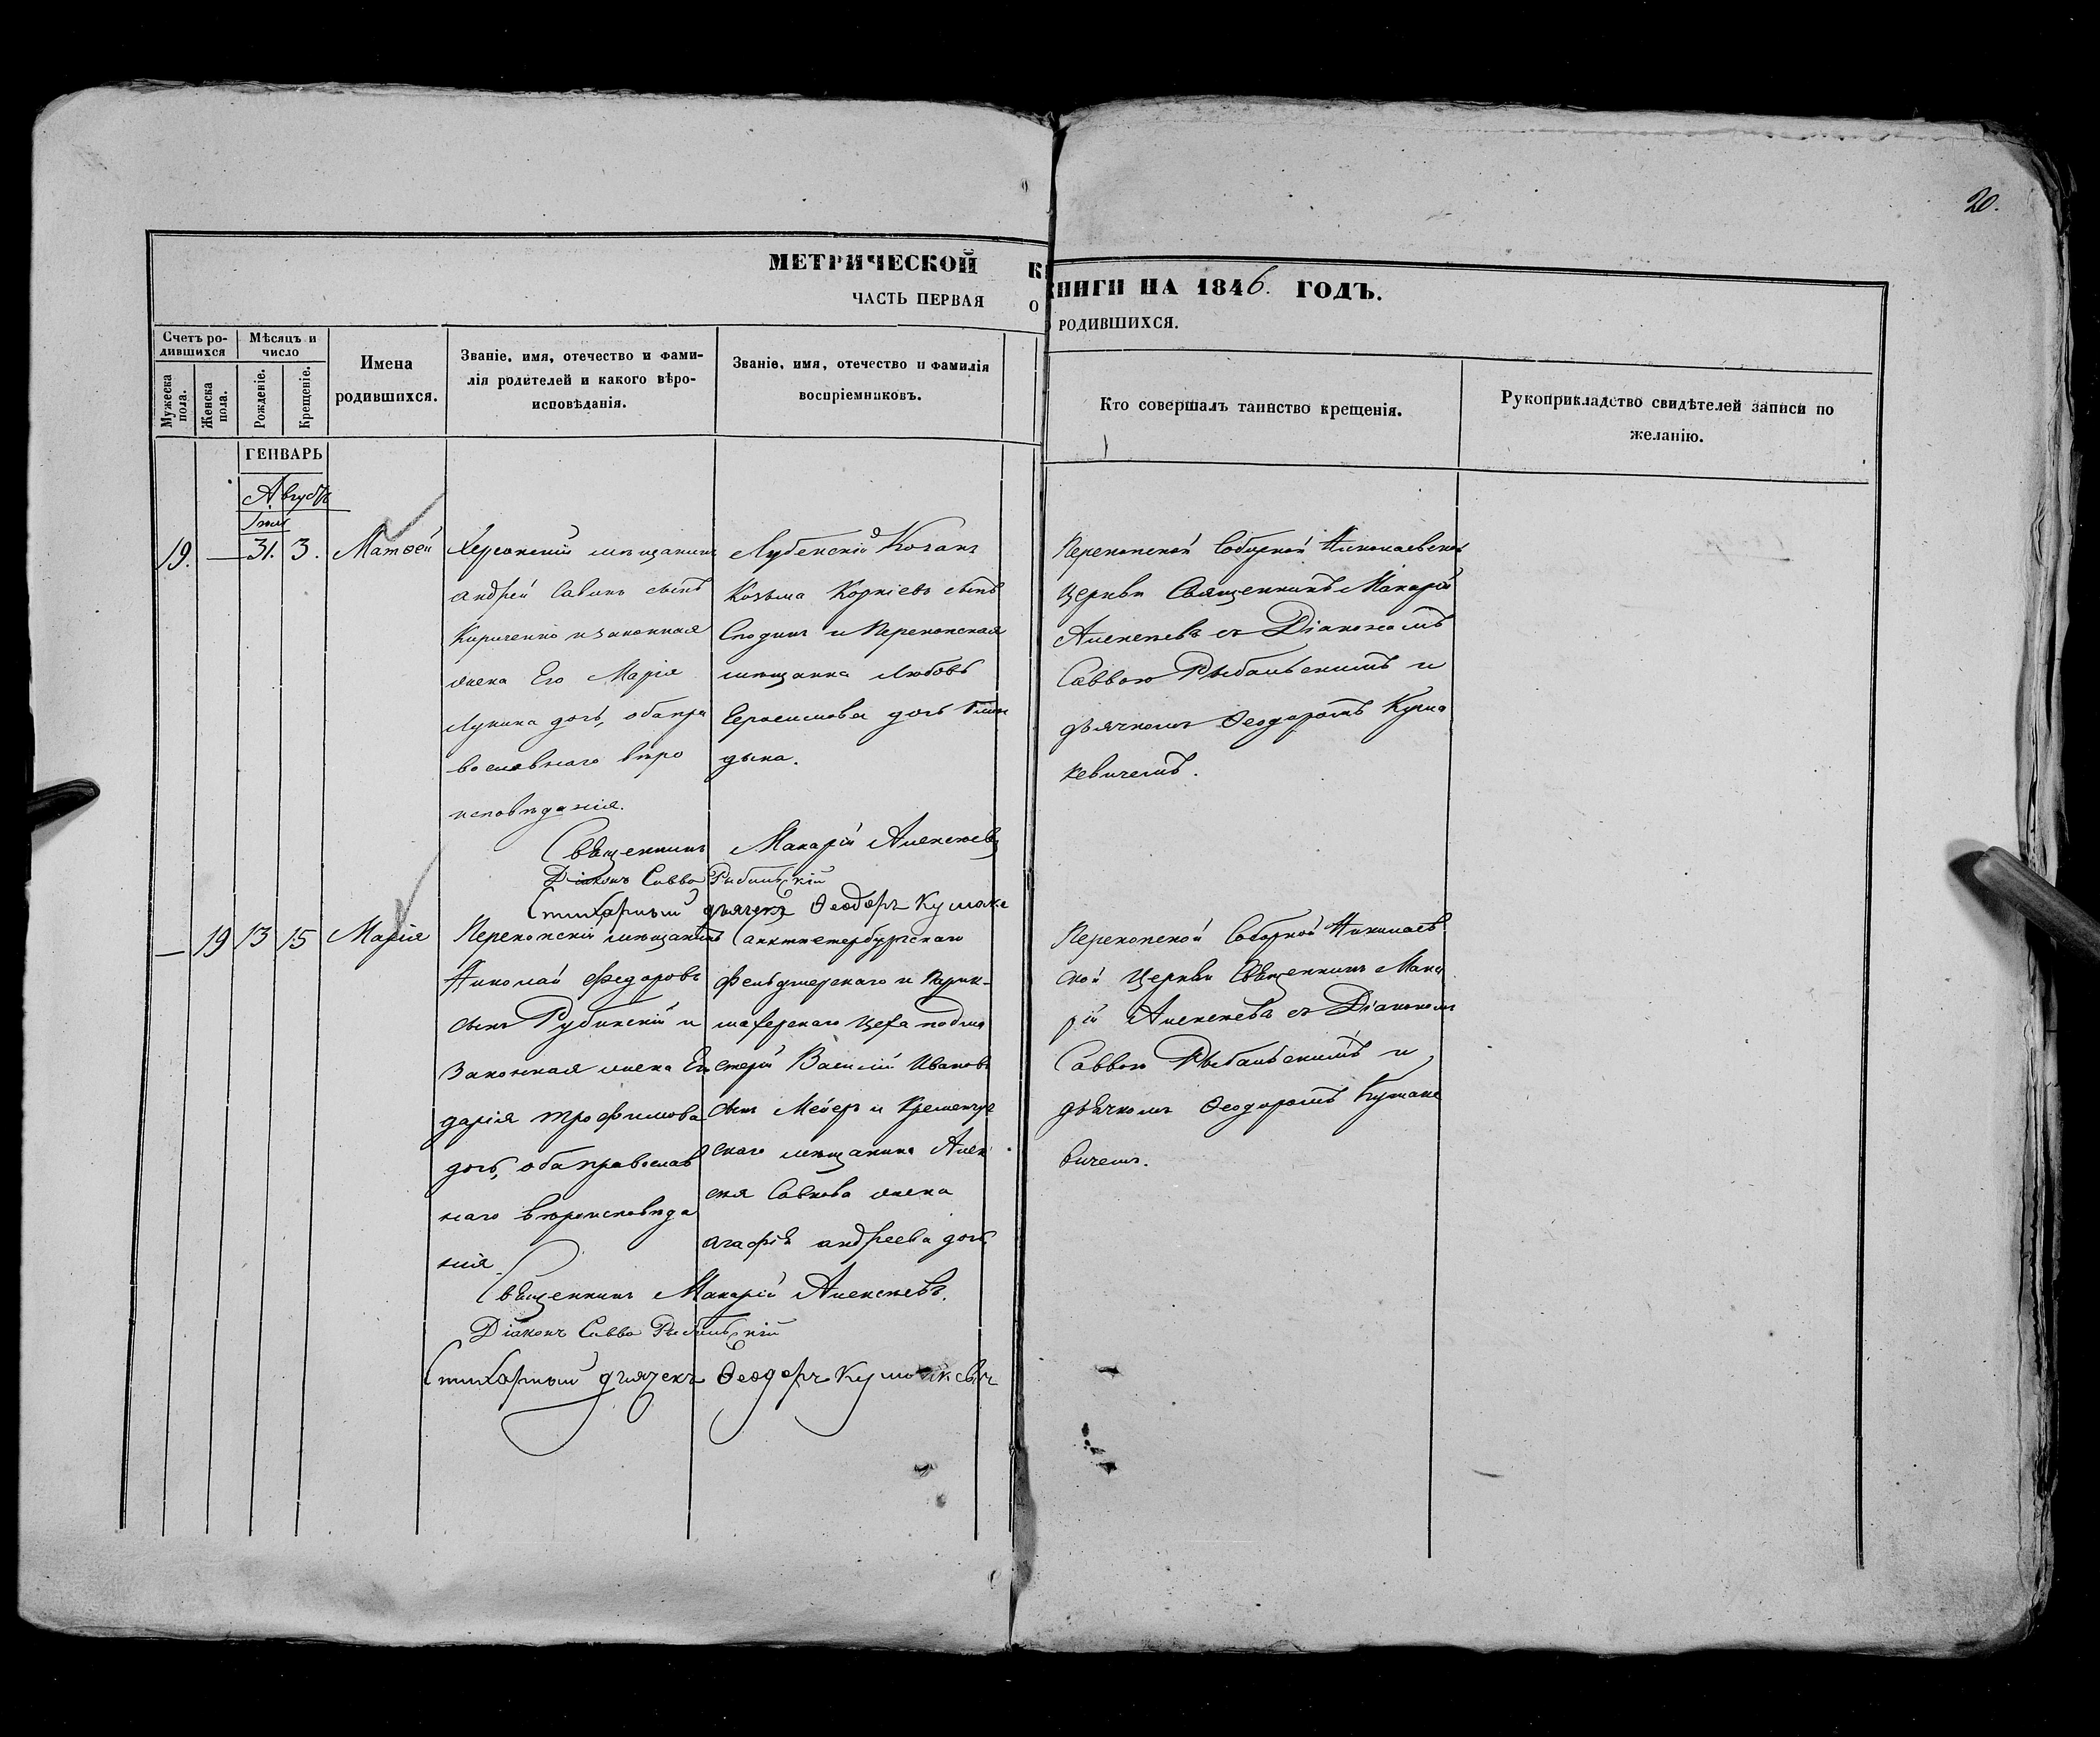 20.
МЕТРИЧЕСКОЙ КНИГИ НА 1846. ГОДЪ.
ЧАСТЬ ПЕРВАЯ О РОДИВШИХСЯ.
Счетъ ро-
дившихся
Мужеска
пола.
Женска
пола.
Мѣсяцъ и
число
Рожденіе.
Крещеніе.
Имена
родившихся.
Званіе, имя, отечество и фами-
лія родителей и какого вѣро-
исповѣданія.
Званіе, имя, отечество и фамилія
воспріемниковъ.
Кто совершалъ таинство крещенія.
Рукоприкладство свидѣтелей записи по
желанію.
ГЕНВАРЬ
Августъ
Іюля
19. — 31. 3. Матѳей
Херсонскій мѣщанинъ
андрей Савинъ сынъ
Кириченко и законная
жена Его Марія
Лукина дочь, оба пра
вославнаго вѣро
исповѣданія.
Лубенскій Козакъ
Козьма Корніевъ сынъ
и Перекопская
мѣщанка Любовь
Герасимова дочь
дыка.
Перекопской Соборной Николаевской
Церкви Священникъ Макарій
Алексѣевъ съ Діакономъ
Саввою Рыбальскимъ и
дьячкомъ Ѳеодоромъ Кума
кевичемъ.
Священникъ Макарій Алексѣевъ
Діаконъ Савва Рыбальскій
Стихарный дьячекъ Ѳеодоръ Кумаке
— 19 13 15 Марія
Перекопскій мѣщанинъ
Николай Федоровъ
сынъ Рубинскій и
Законная жена Его
дарія трофимова
дочь, оба православ
наго вѣроисповѣда
нія.
Санктпетербургскаго
Фельдшерскаго и Парик-
махерскаго Цеха подма
стерій Василій Ивановъ
сынъ Мейеръ и Кременчуг
скаго мѣщанина Алек
сѣя Савкова жена
агафія андреева дочь
Перекопской Соборной Николаев
ской Церкви Священникъ Мака
рій Алексѣевъ съ Діакономъ
Саввою Рыбальскимъ и
дьячкомъ Ѳеодоромъ Кумаке
вичемъ.
Священникъ Макарій Алексѣевъ.
Діаконъ Савва Рыбальскій
Стихарный дьячекъ Ѳеодоръ Кумакевичъ